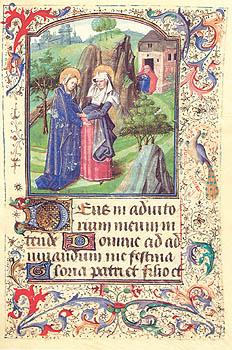 Deus in adiuto
rium meum in
tende Domine ad ad
iuuandum me festina
Gloria patri et filio et